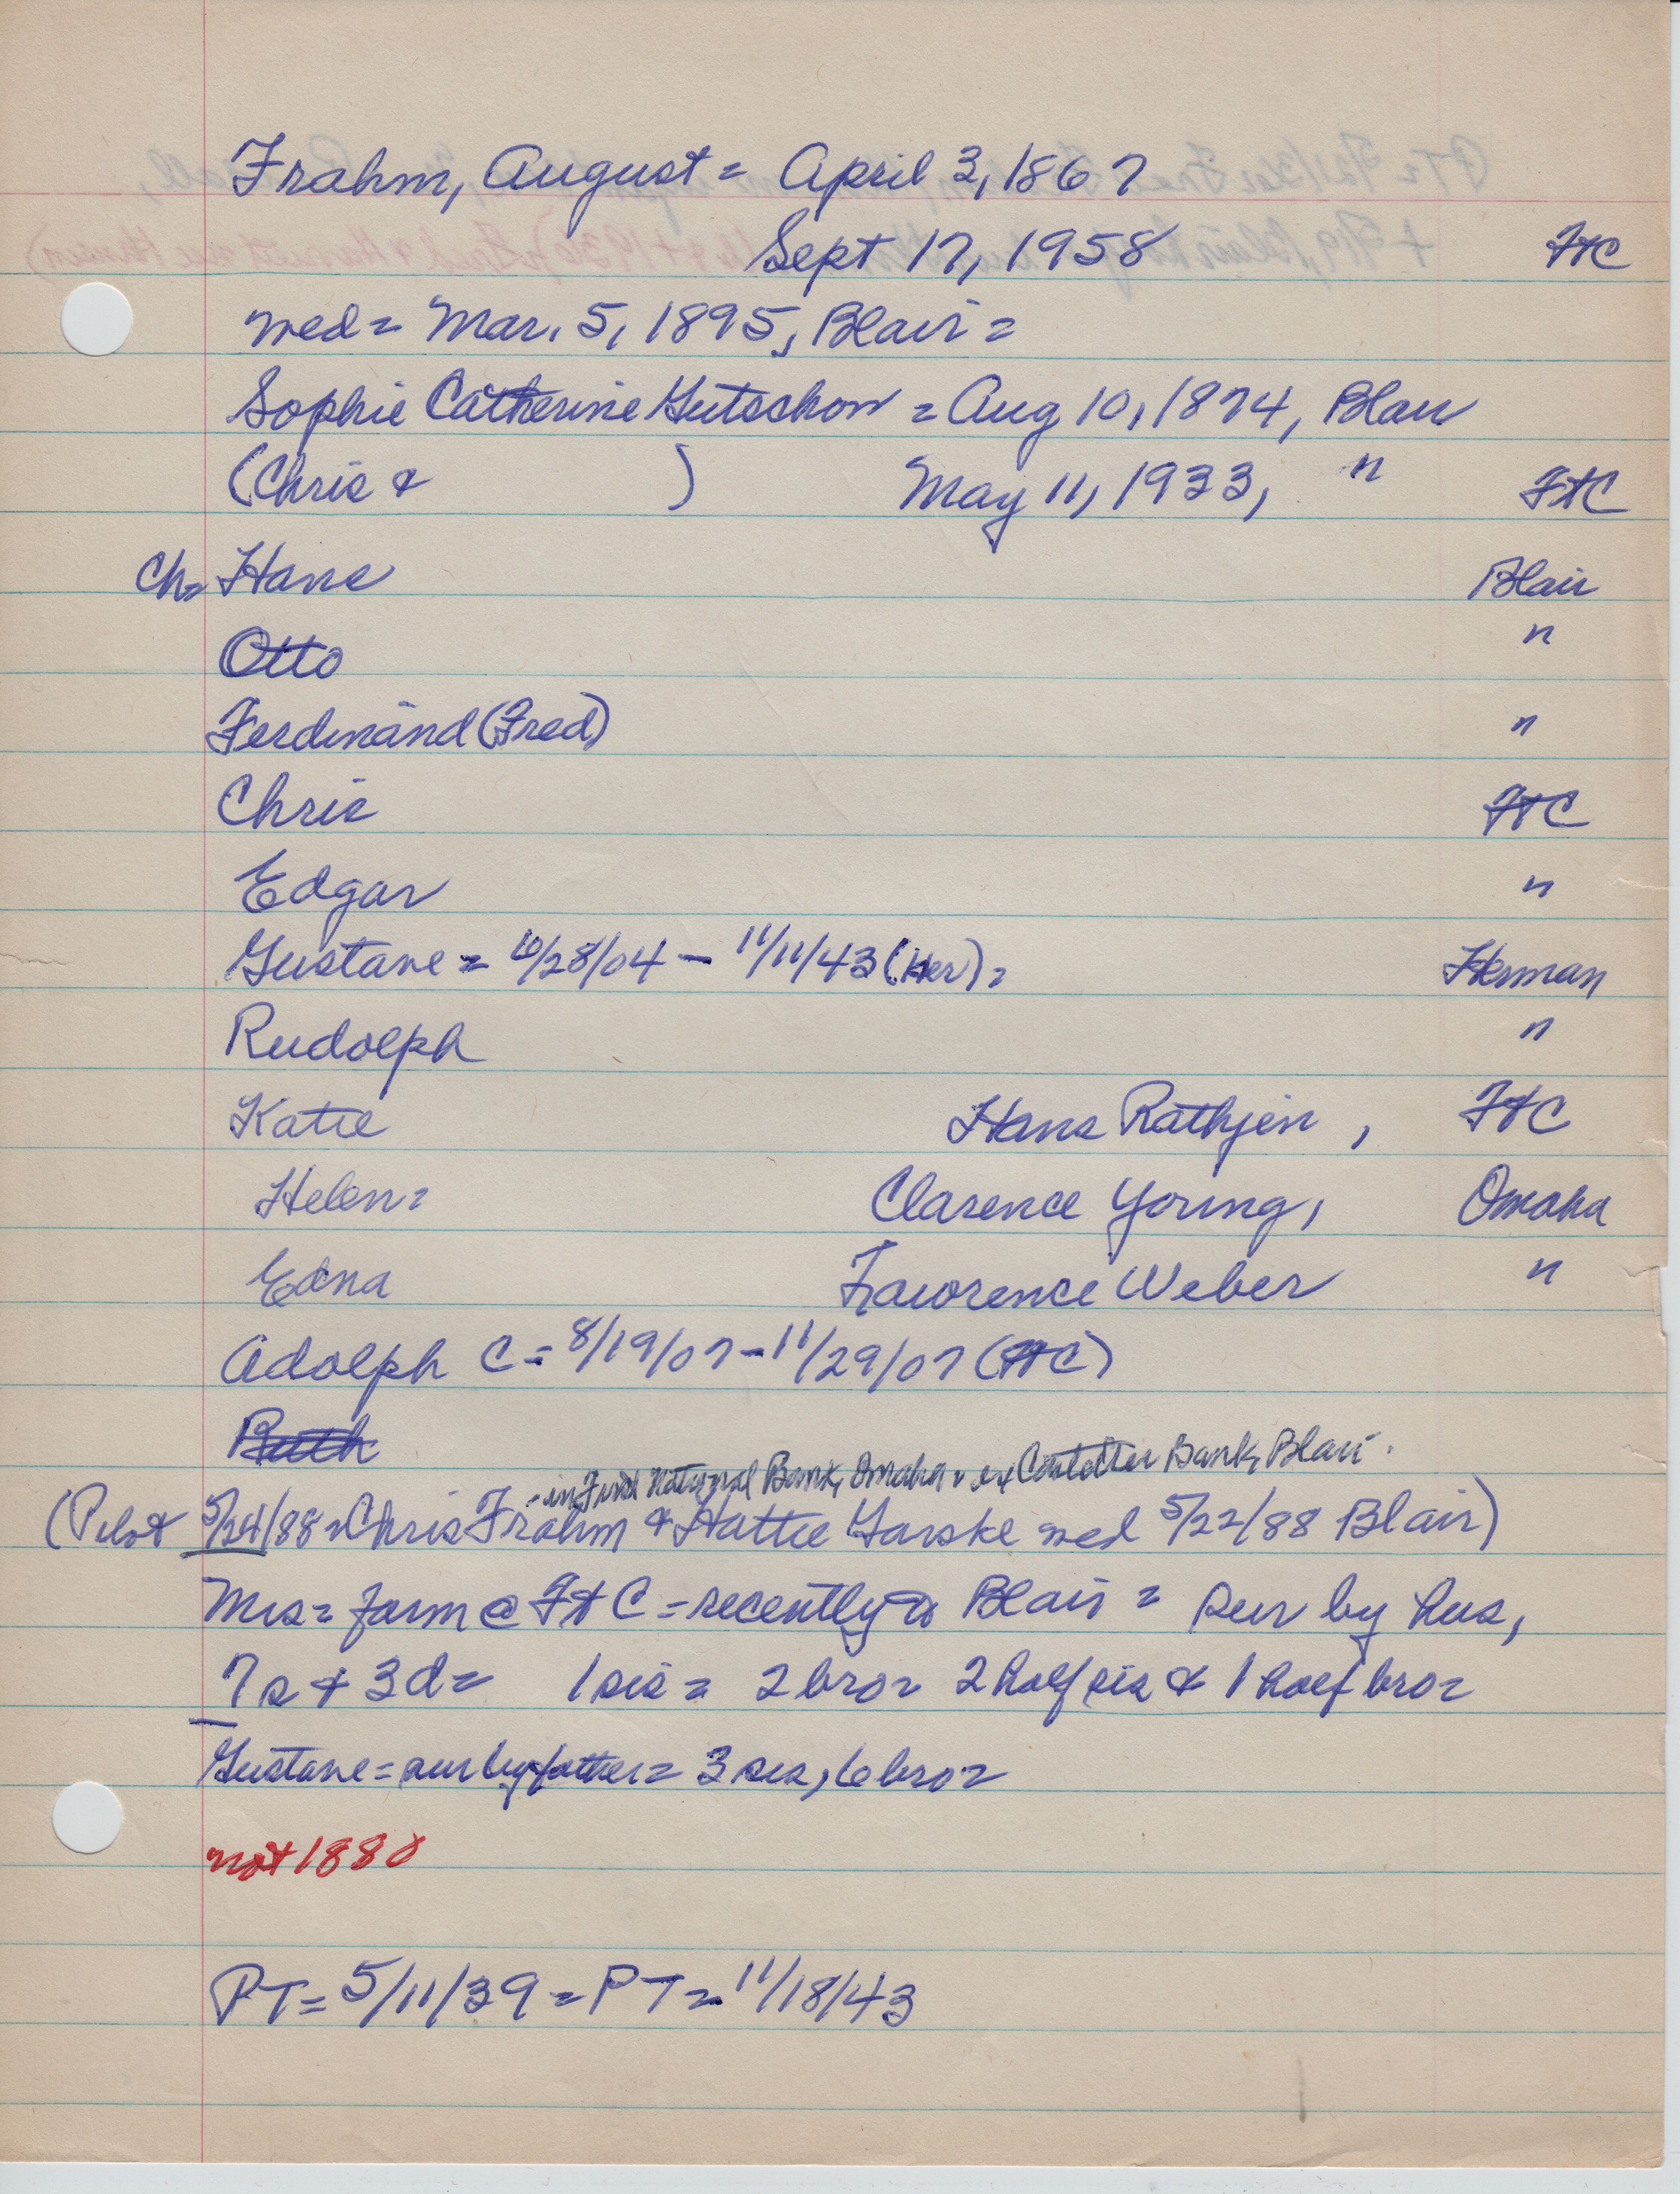 Frahm, August = April 3, 1867
Sept 17, 1958 FtC
med = Mar. 5, 1895, Blair =
Sophie Catherine Gutschow = Aug 10, 1874, Blair
(Chris & ) May 11, 1933, " FtC
Ch= Hans Blair
Otto "
Ferdinand (Fred) "
Chris FtC
Edgar "
Gustave = 10/28/04 - 11/11/43 (Her) = Herman
Rudolph "
Katie Hans Rathjen, FtC
Helen = Clarence Young, Omaha
Edna Lawrence Weber "
Adolph C = 8/19/07 - 11/29/07 (FtC)
Ruth
- in First National Bank, Omaha & ex Bank, Blair.
(Pilot 5/24/88 = Chris Frahm & Hattie Garske med 5/22/88 Blair)
Mrs = farm @ Ft C = recently to Blair = sur by hus,
7 s & 3 d = 1 sis = 2 bro = 2 half sis & 1 half bro =
Gustave = sur by father = 3 sis, 6 bro =
not 1880
PT = 5/11/39 = PT = 11/18/43